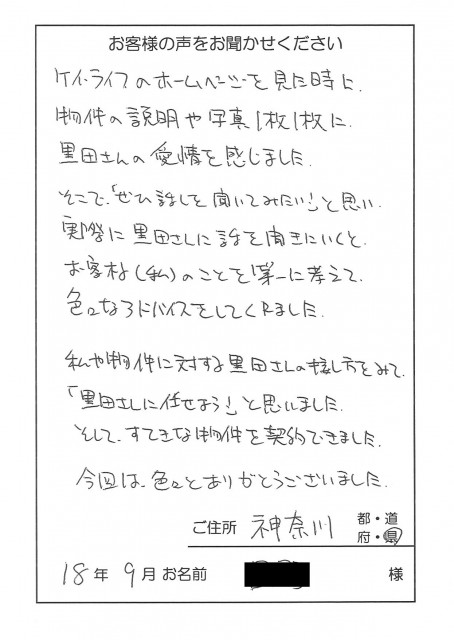 お客様の声をお聞かせください
ケイ・ライフのホームページを見た時に、
物件の説明や写真1枚1枚に、
黒田さんの愛情を感じました。
そこで、「ぜひ話しを聞いてみたい!」と思い、
実際に黒田さんに話を聞きにいくと、
お客様(私)のことを第一に考えて、
色々なアドバイスをしてくれました。
私や物件に対する黒田さんの接し方をみて、
「黒田さんに任せよう!」と思いました。
そして、すてきな物件を契約できました。
今回は、色々とありがとうございました。
ご住所 神奈川 都・道府・県
18年 9月 お名前 様